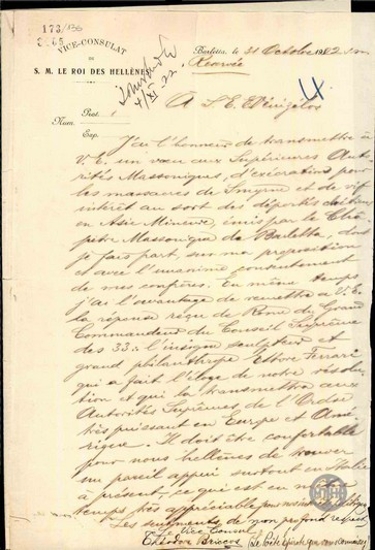 173/
VICE-CONSULAT
DE
S. M. LE ROI DES HELLÈNES
Barletta, le 31 Octobre 1922
Réservée
4/XI 22
Prot. 1
Num.
Exp.
A S. E. Vénizélos
J'ai l'honneur de transmettre à
V. E. un vœu aux Supérieures Auto-
rités Massoniques, d'exécration pour
les massacres de Smyrne et de vif
intérêt au sort des déportés chrétiens
en Asie Mineure, émis par le Cha-
pitre Massonique de Barletta, dont
je fais part, sur ma proposition
et avec l'unanime consentement
de mes confrères. En même temps
j'ai l'avantage de remettre à V. E.
la réponse reçue de Rome du Grand
Commandeur du Conseil Suprême
des 33.. l'insigne sculpteur et
grand philanthrope Ettore Ferrari
qui a fait l'éloge de notre résolu-
tion et qui la transmettra aux
Autorités Suprêmes de l'Ordre
très puissant en Europe et Amé-
rique. Il doit être confortable
pour nous hellènes de trouver
un pareil appui surtout en Italie
à présent, ce qui est en même
temps très appréciable pour
Les sentiments de mon profond respect
Vice Consul
Théodor Briccos